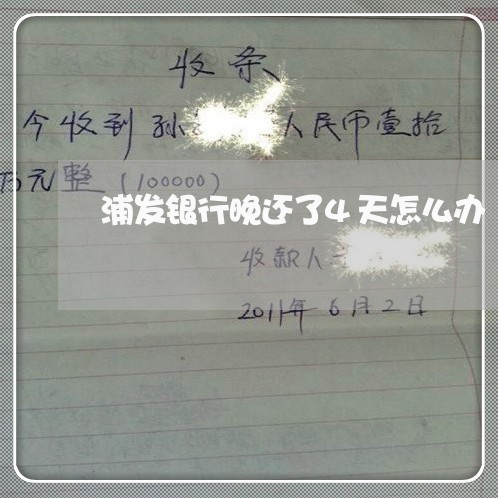 收条
今收到孙 人民币壹拾
万元整(100000)
浦发银行晚还了4天怎么办
收款人
2011年6月2日